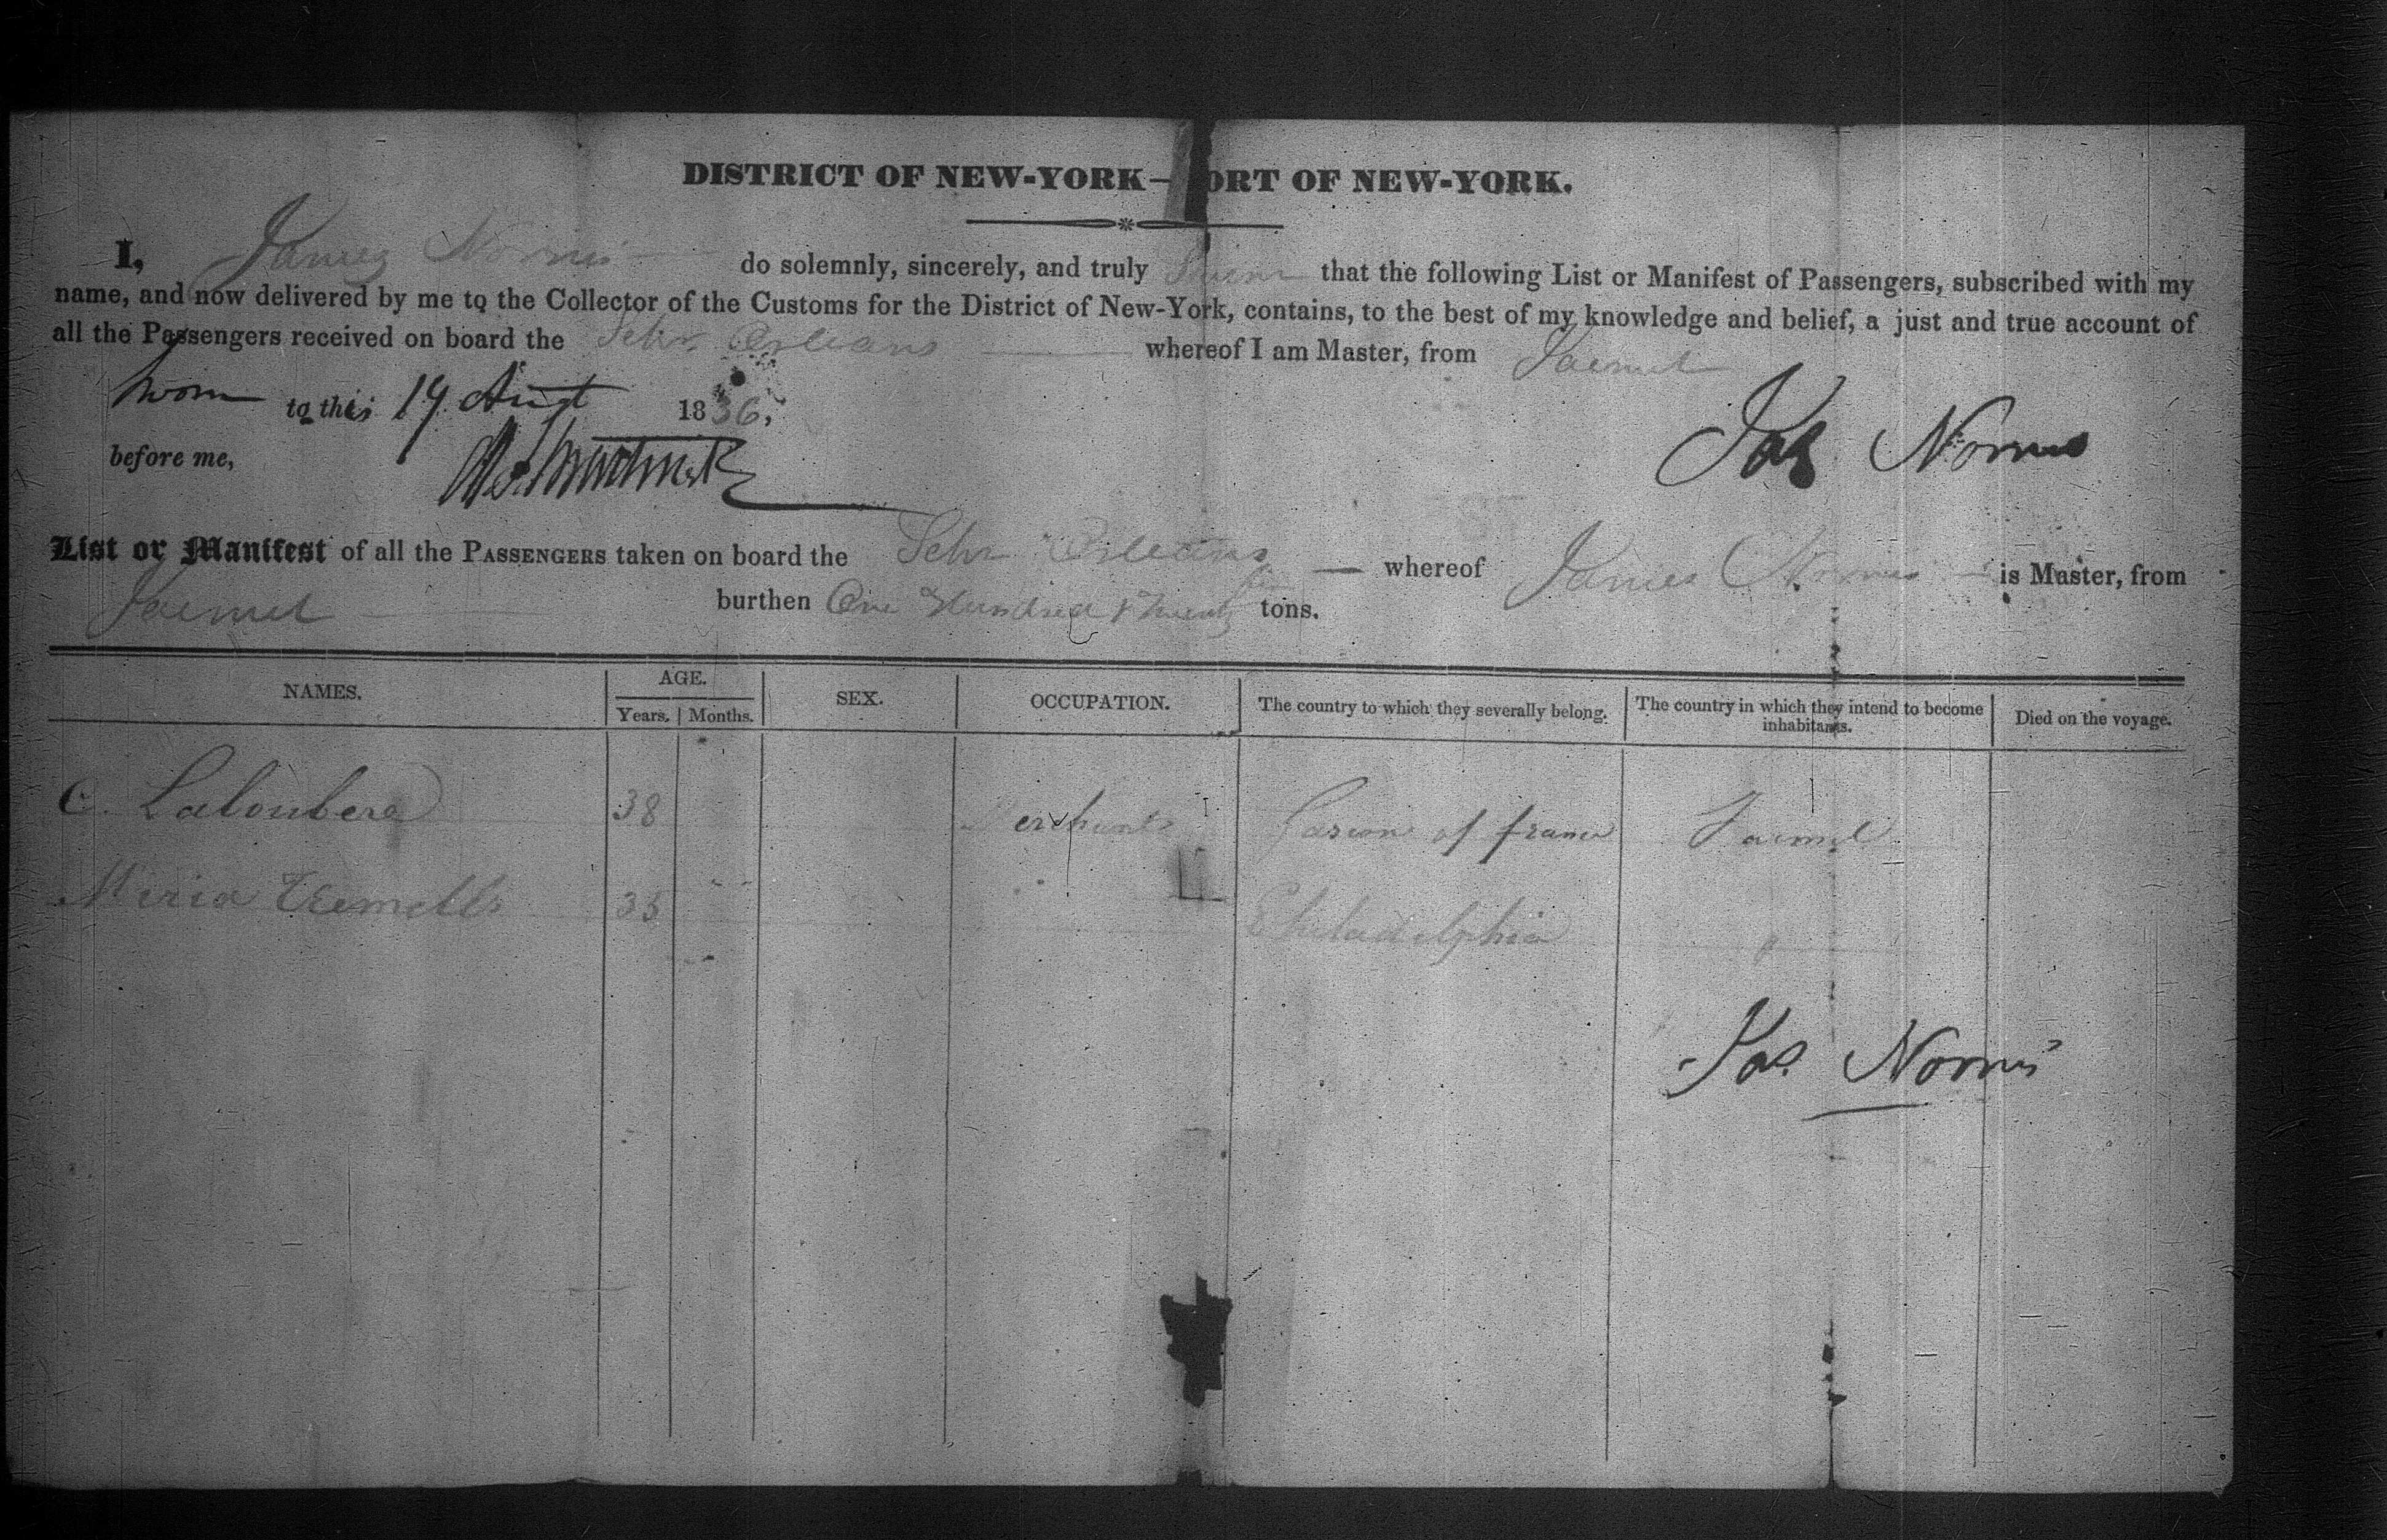 DISTRICT OF NEW-YORK— ORT OF NEW-YORK.
I, James Norris do solemnly, sincerely, and truly Swear that the following List or Manifest of Passengers, subscribed with my
name, and now delivered by me to the Collector of the Customs for the District of New-York, contains, to the best of my knowledge and belief, a just and true account of
all the Passengers received on board the Schr Orleans whereof I am Master, from Jacmel
Sworn to this 19 Augt 1836,
before me,
Jas Norris
List or Manifest of all the PASSENGERS taken on board the Schr Orleans — whereof James Norris is Master, from
Jacmel burthen One Hundred & Twenty tons.
NAMES. AGE. SEX. OCCUPATION. The country to which they severally belong. The country in which they intend to become inhabitants. Died on the voyage.
Years. Months.
C. Laloubere 38 Merchant of france Jacmel
35 Philadelphia "
Jas. Norris